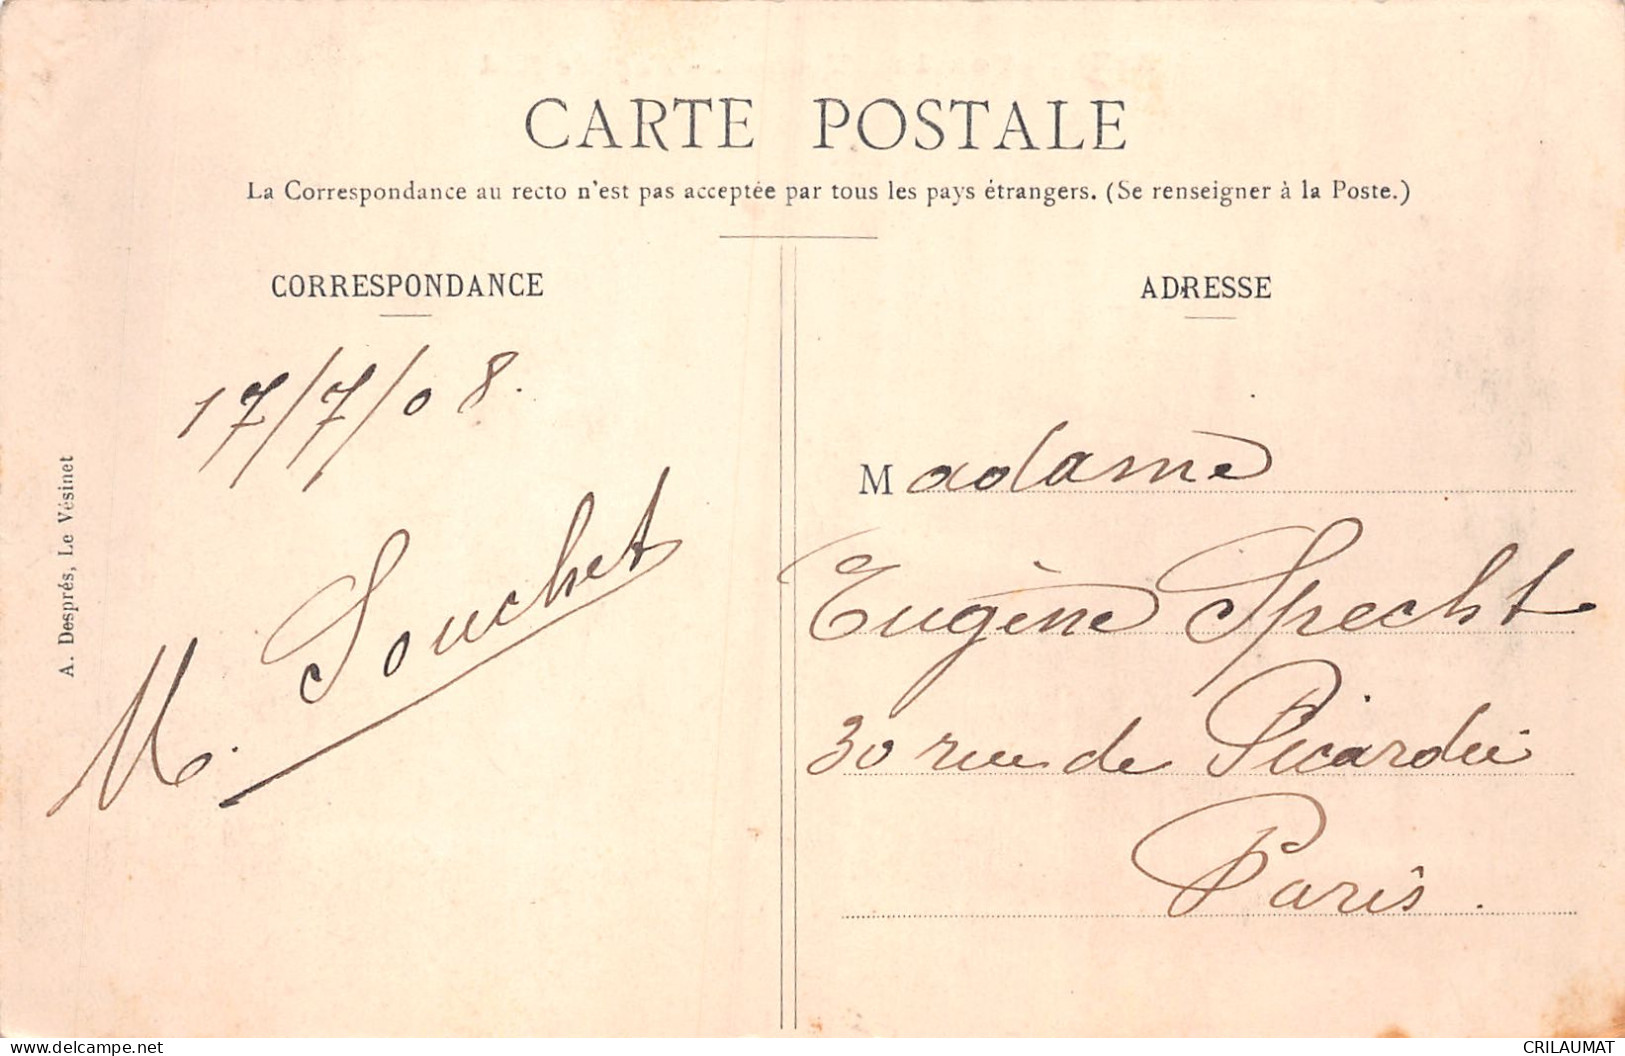 CARTE POSTALE
La Correspondance au recto n'est pas acceptée par tous les pays étrangers. (Se renseigner à la Poste.)
CORRESPONDANCE
17/7/08.
M. Souchet
A. Després, Le Vésinet
ADRESSE
Madame
Eugène Specht
30 rue de Picardie
Paris.
www.delcampe.net
CRILAUMAT